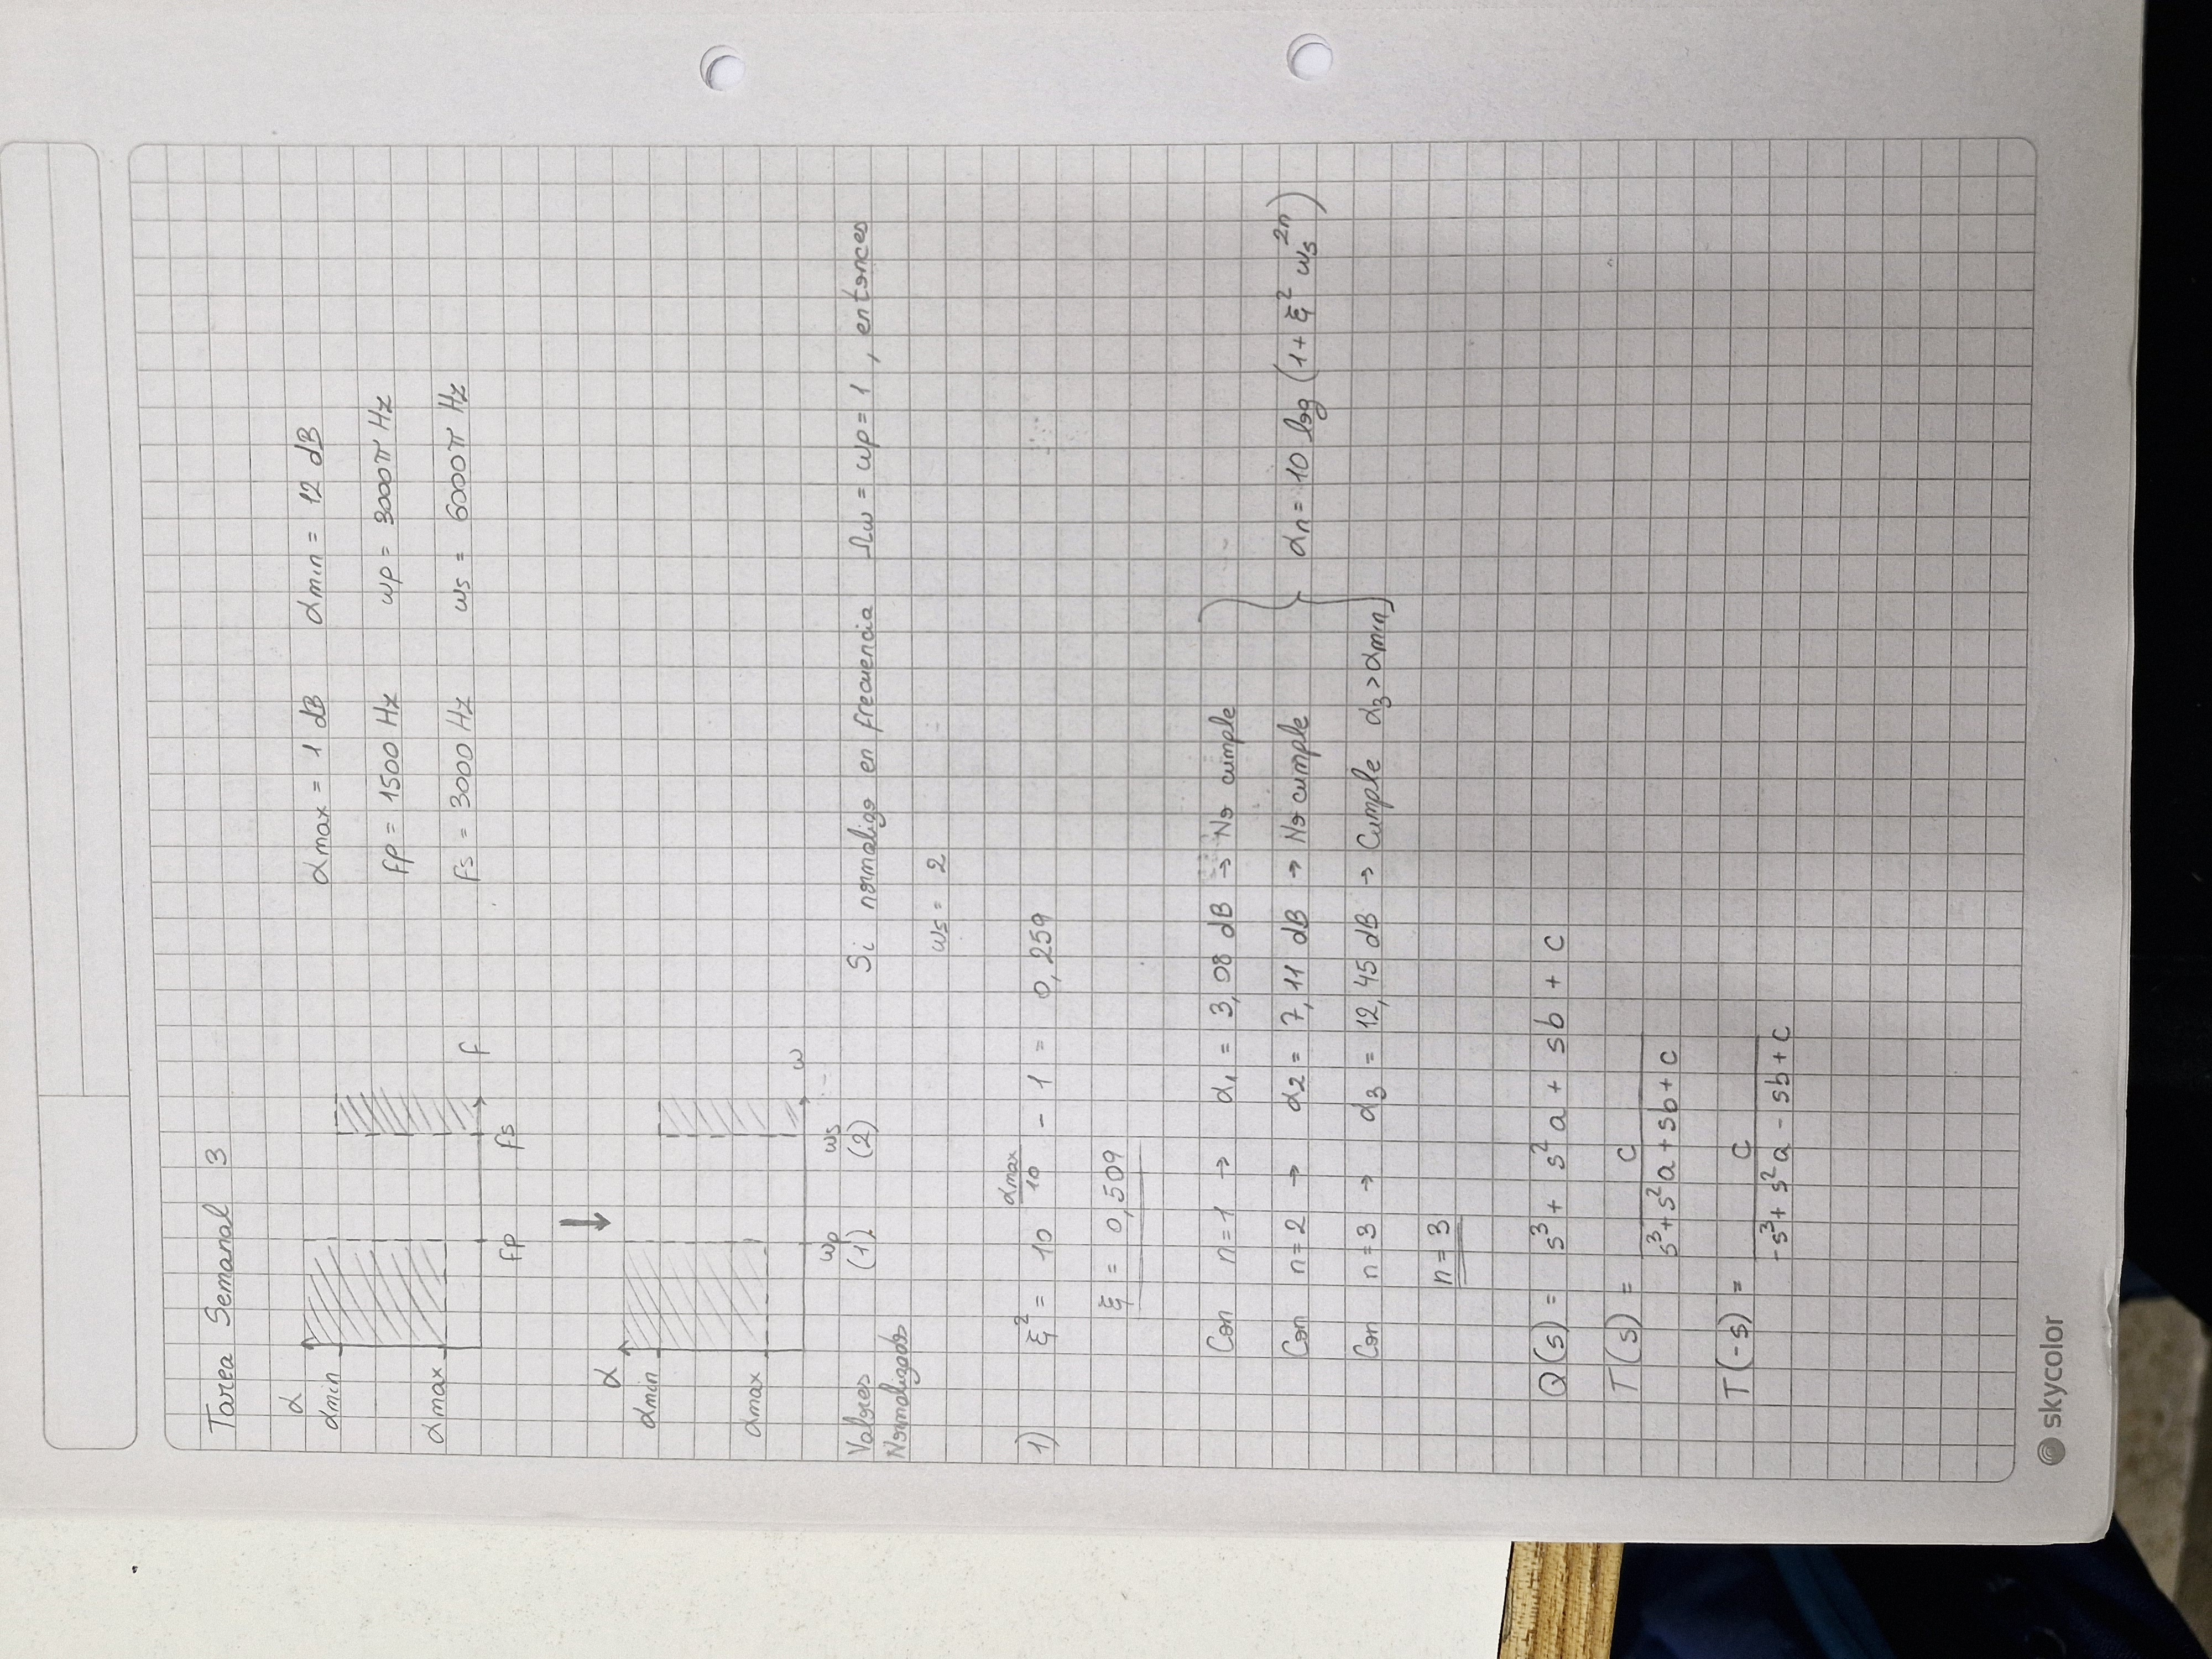 Tarea Semanal 3
α
αmin
αmax
f
fp fs
αmax = 1 dB αmin = 12 dB
fp = 1500 Hz ωp = 3000π Hz
fs = 3000 Hz ωs = 6000π Hz
↓
α
αmin
αmax
ω
ωp ωs
Valores (1) (2)
Normalizados
Si normalizo en frecuencia Ωω = ωp = 1 , entonces
ωs = 2
1) ξ² = 10^(αmax/10) - 1 = 0,259
ξ = 0,509
Con n=1 → α₁ = 3,08 dB → No cumple
Con n=2 → α2 = 7,11 dB → No cumple
Con n=3 → α3 = 12,45 dB → Cumple α3 > αmin
αn = 10 log (1 + ξ² ωs^2n)
n = 3
Q(s) = s³ + s² a + s b + c
T(s) = c / (s³ + s² a + s b + c)
T(-s) = c / (-s³ + s² a - s b + c)
skycolor